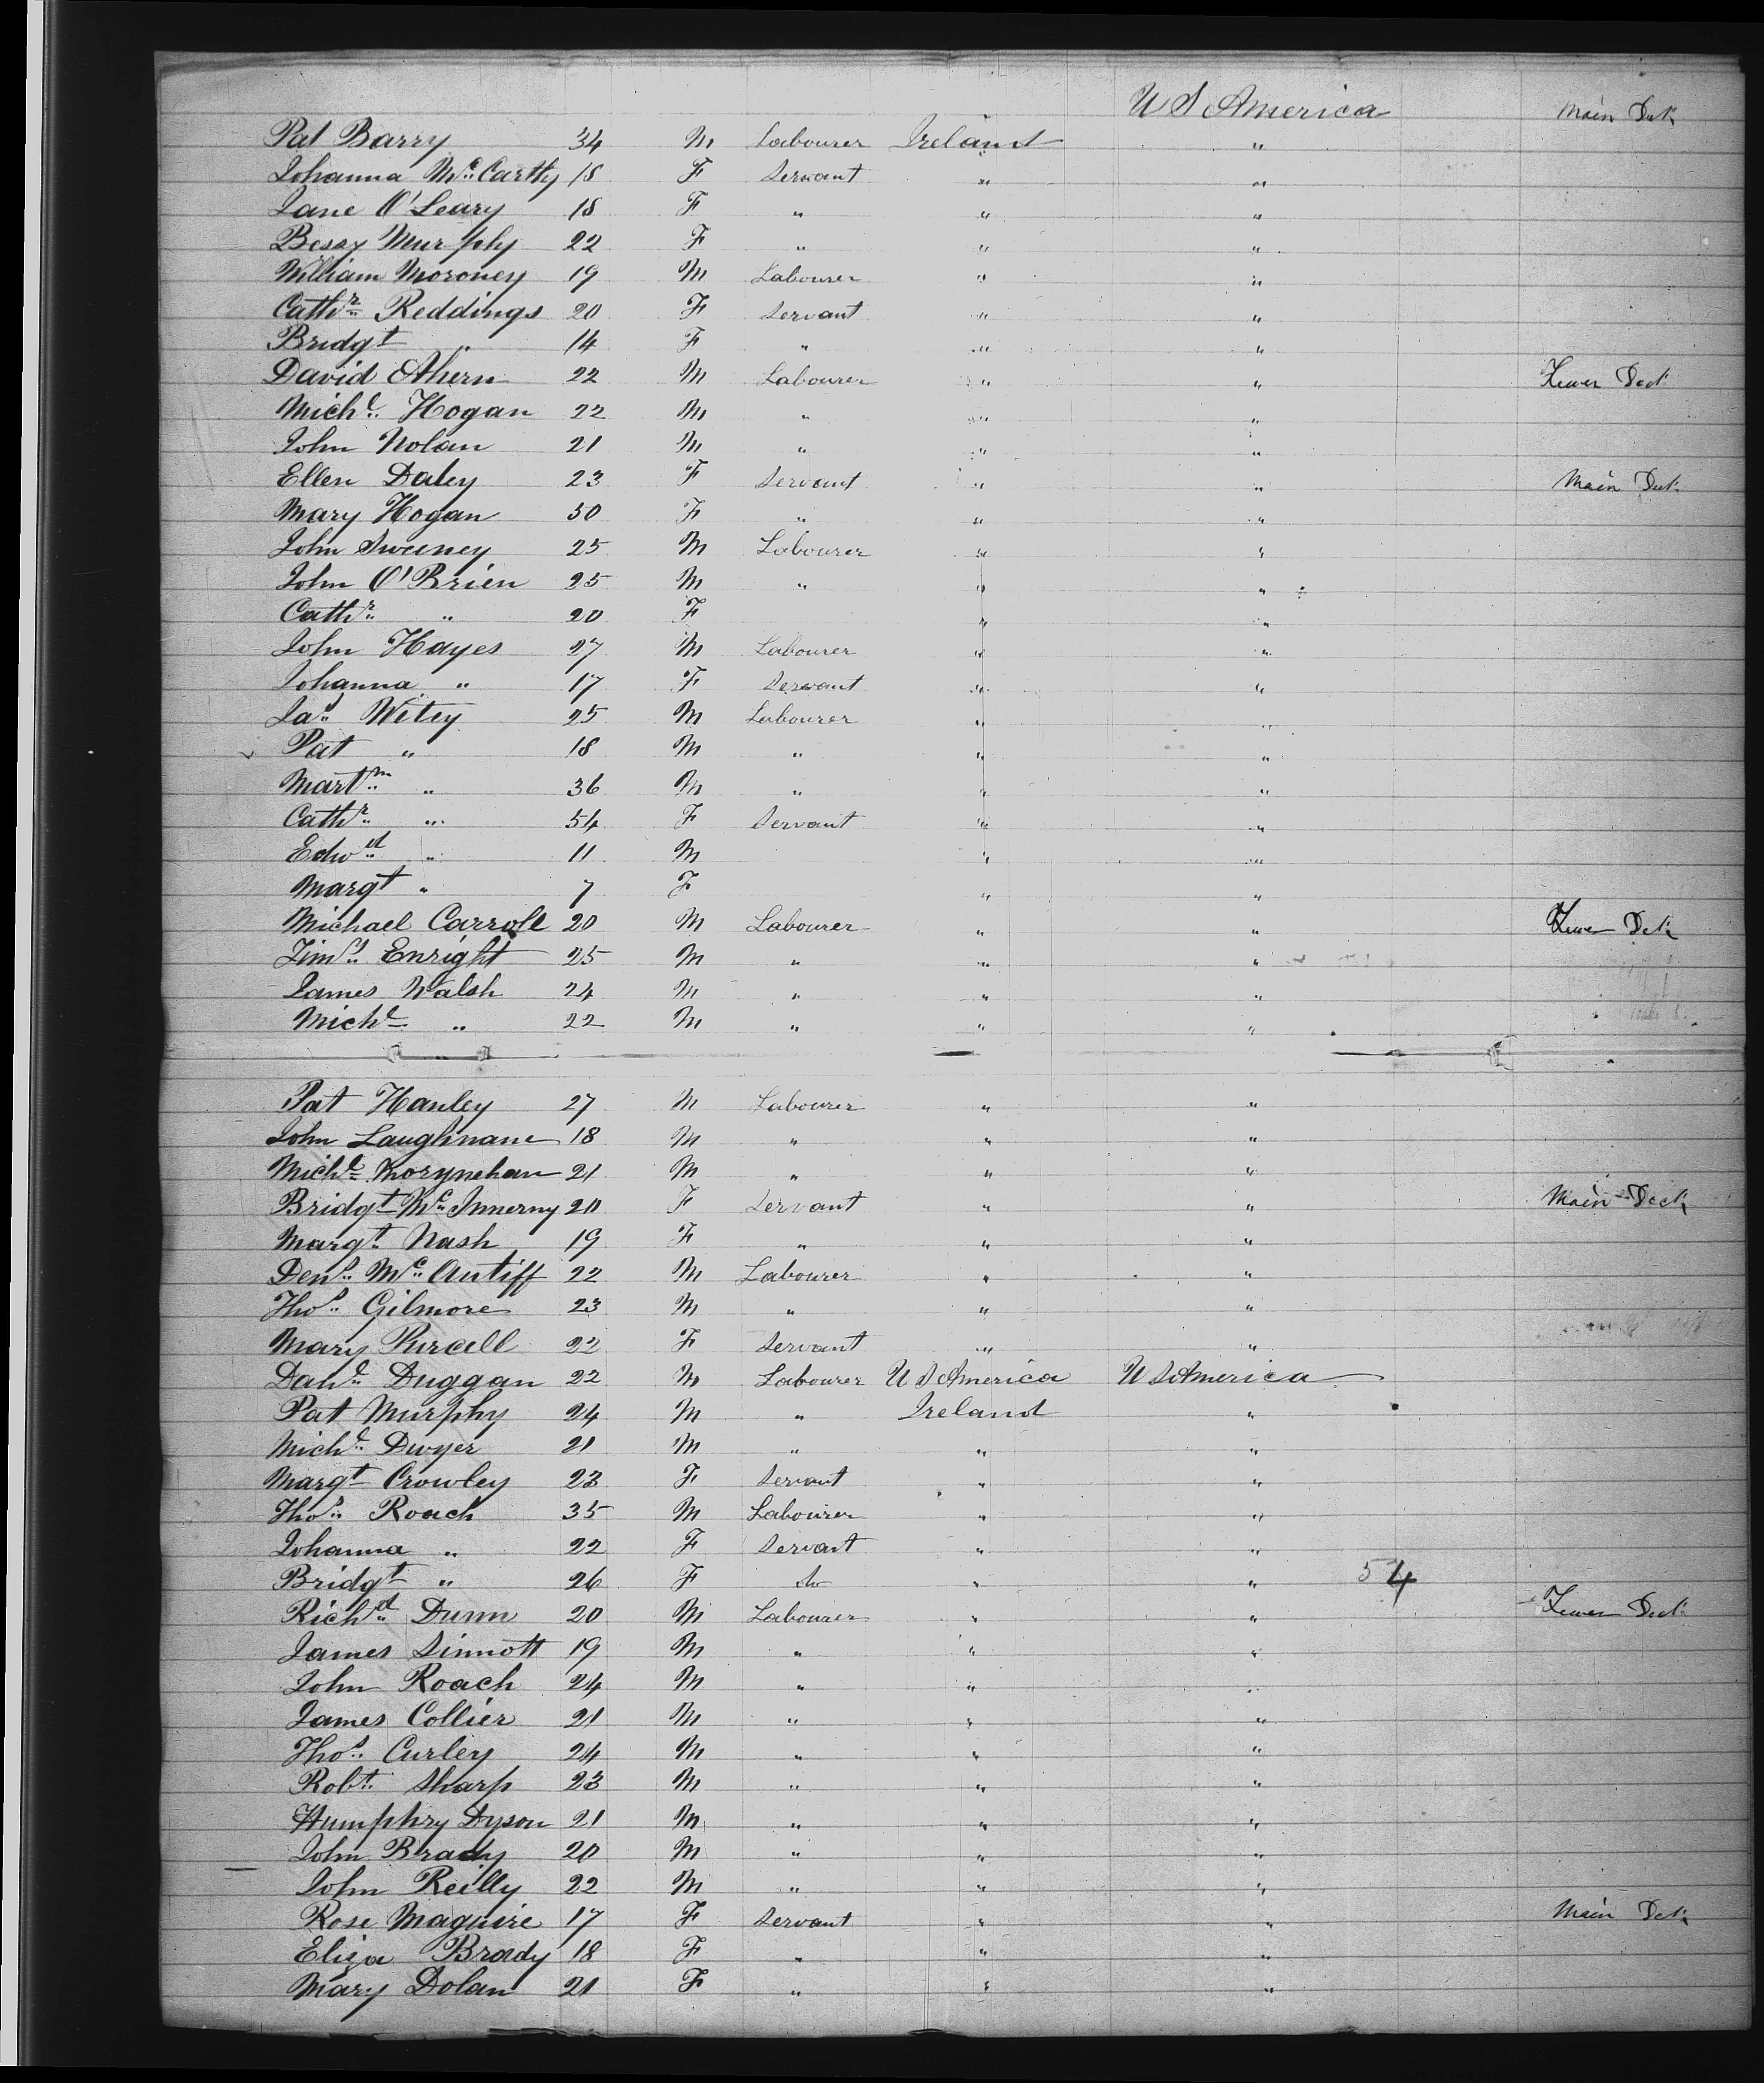 U S America Main Deck
Pat Barry 34 M Labourer Ireland "
Johanna McCarthy 18 F Servant " "
Jane O'Leary 18 F " " "
Bessy Murphy 22 F " " "
William Moroney 19 M Labourer " "
Cathr Reddings 20 F Servant " "
Bridgt " 14 F " " "
David Ahern 22 M Labourer " " Lower Deck
Michl Hogan 22 M " " "
John Nolan 21 M " " "
Ellen Daley 23 F Servant " " Main Deck
Mary Hogan 50 F " " "
John Sweeney 25 M Labourer " "
John O'Brien 25 M " " "
Cathr " 20 F " "
John Hayes 27 M Labourer " "
Johanna " 17 F Servant " "
Jas Witey 25 M Labourer " "
Pat " 18 M " " "
Martin " 36 M " " "
Cathr " 54 F Servant " "
Edwd " 11 M " "
Margt " 7 F " "
Michael Carroll 20 M Labourer " " Lower Deck
Tims Enright 25 M " " "
James Walsh 24 M " " "
Michl " 22 M " " "
Pat Hanley 27 M Labourer " "
John Laughnane 18 M " " "
Michl 21 M " " "
Bridgt McInnerny 20 F Servant " " Main Deck
Margt Nash 19 F " " "
Dens McAntiff 22 M Labourer " "
Thos Gilmore 23 M " " "
Mary Purcell 22 F Servant " "
Danl Duggan 22 M Labourer U S America U S America
Pat Murphy 24 M " Ireland "
Michl Dwyer 21 M " " "
Margt Crowley 23 F Servant " "
Thos Roach 35 M Labourer " "
Johanna " 22 F Servant " "
Bridgt " 26 F do " " 54
Richd Dunn 20 M Labourer " " Lower Deck
James Sinnott 19 M " " "
John Roach 24 M " " "
James Collier 21 M " " "
Thos Curley 24 M " " "
Robt Sharp 23 M " " "
Humphry Dyson 21 M " " "
John Brady 20 M " " "
John Reilly 22 M " " "
Rose Maguire 17 F Servant " " Main Deck
Eliza Brady 18 F " " "
Mary Dolan 21 F " " "